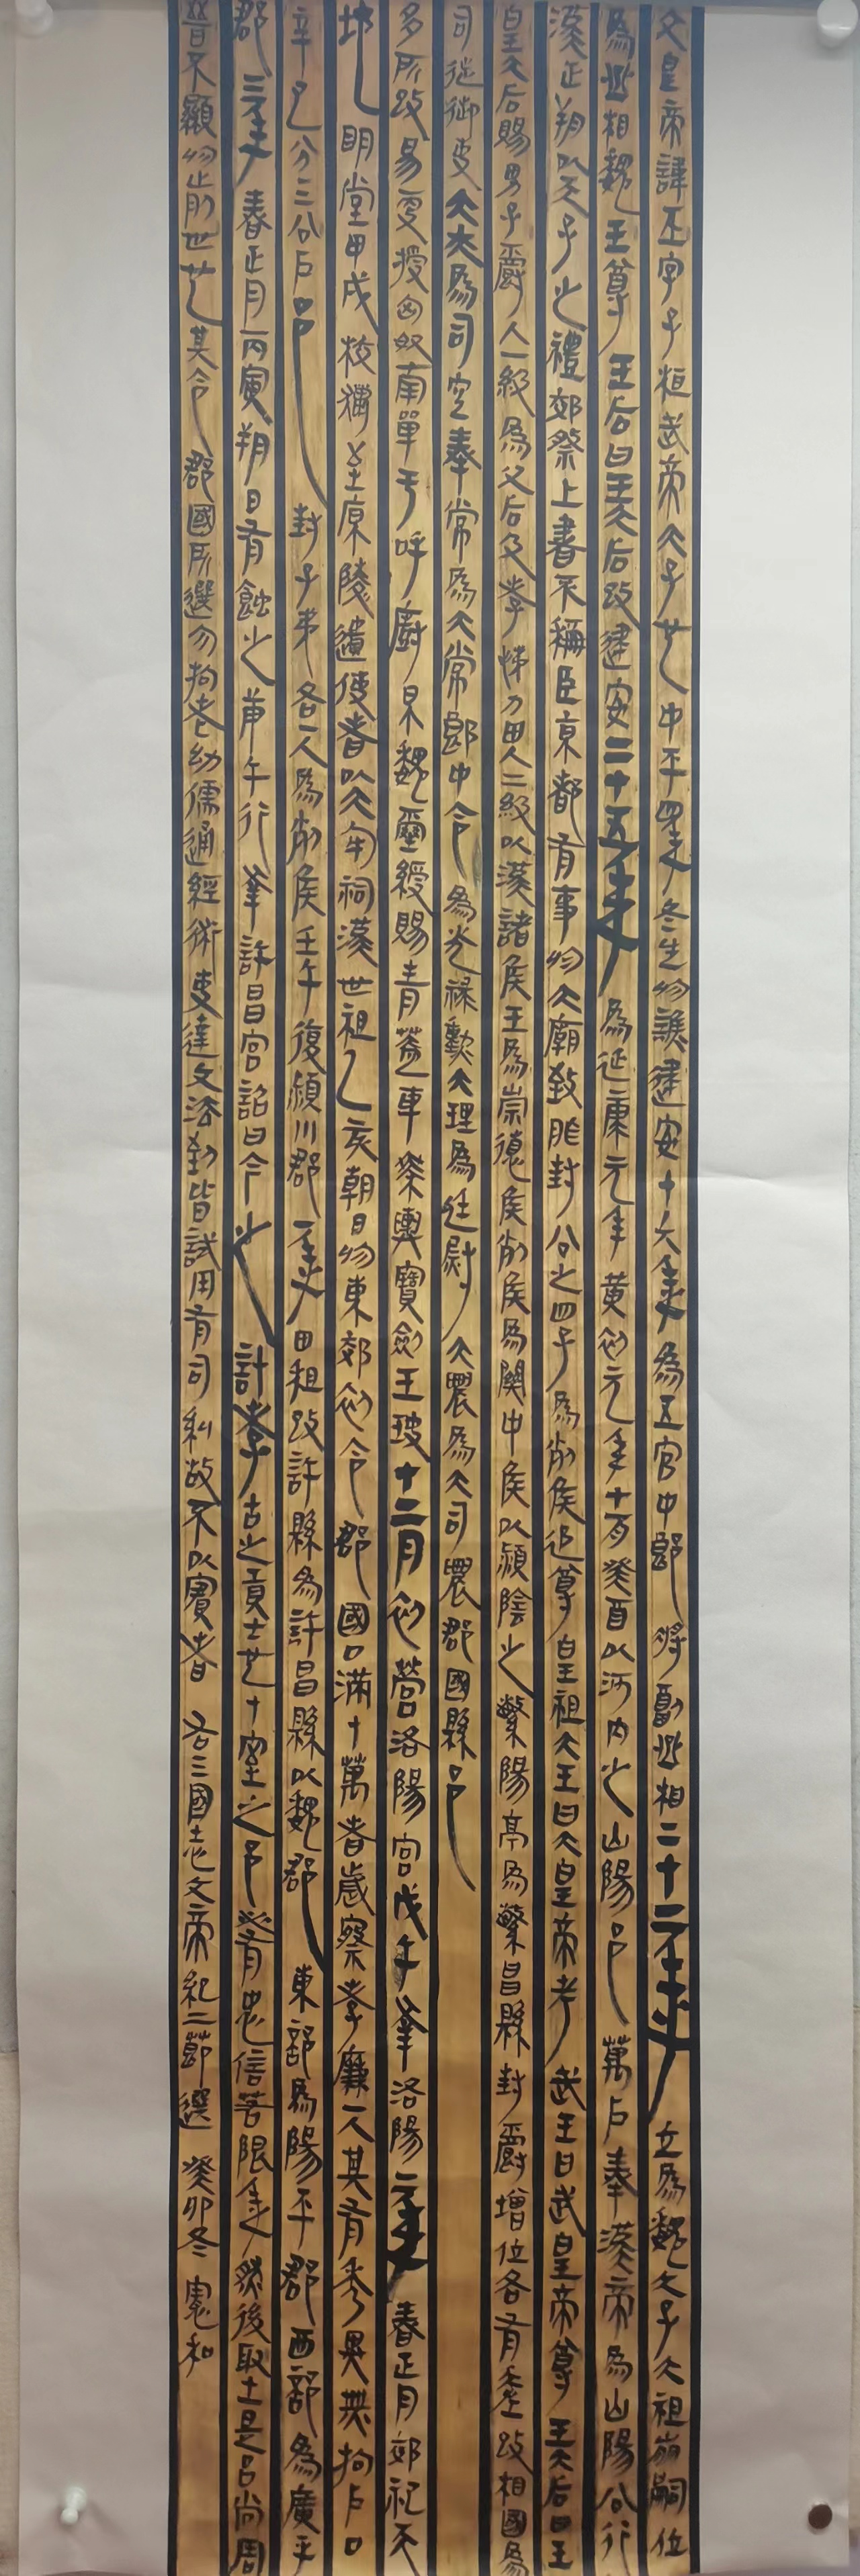 文皇帝諱丕字子桓武帝太子也中平四年冬生於譙建安十六年為五官中郎將副丞相二十二年立為魏太子太祖崩嗣位
為丞相魏王尊王后曰王太后改建安二十五年為延康元年黃初元年十一月癸酉以河內之山陽邑萬戶奉漢帝為山陽公行
漢正朔以天子之禮郊祭上書不稱臣京都有事於太廟致胙封公之四子為列侯追尊皇祖太王曰太皇帝考武王曰武皇帝尊王太后曰王
皇太后賜男子爵人一級為父后及孝悌力田人二級以漢諸侯王為崇德侯列侯為關中侯以潁陰之繁陽亭為繁昌縣封爵增位各有差改相國為
司徒御史大夫為司空奉常為太常郎中令為光祿勳大理為廷尉大農為大司農郡國縣邑
多所改易更授匈奴南單于呼廚泉魏璽綬賜青蓋車乘輿寶劍玉玦十二月初營洛陽宮戊午幸洛陽二年春正月郊祀天
地明堂甲戌校獵至原陵遣使者以太牢祠漢世祖乙亥朝日於東郊初令郡國口滿十萬者歲察孝廉一人其有秀異無拘戶口
辛巳分三公戶邑封子弟各一人為列侯壬午復潁川郡一年田租改許縣為許昌縣以魏郡東部為陽平郡西部為廣平
郡三年春正月丙寅朔日有蝕之庚午行幸許昌宮詔曰今之計孝古之貢士也十室之邑必有忠信若限年然後取士是呂尚周
晉不顯於前世也其令郡國所選勿拘老幼儒通經術吏達文法到皆試用有司糾故不以實者 右三國志文帝紀二節選 癸卯冬憲和